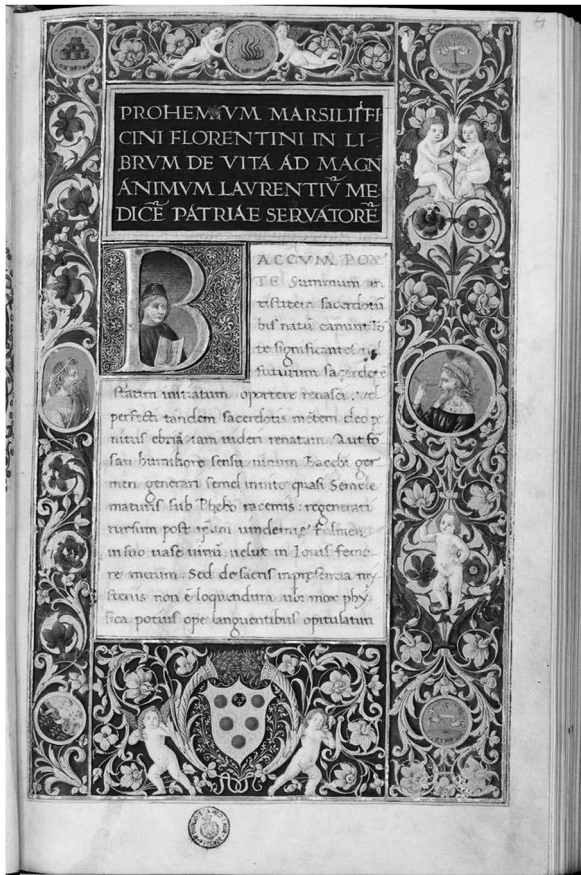 PROHEMIVM MARSILII FI
CINI FLORENTINI IN LI-
BRVM DE VITA AD MAGN
ANIMVM LAVRENTIV̄ ME
DICĒ PATRIAE SERVATORĒ
BACCVM POE
TE Summum an
tistitem sacerdotū
bis natū canunt Fo
te significantes vel
futurum sacerdotē
statim initiatum oportere renasci. vel
perfecti tandem sacerdotis mētem deo pe
nitus ebriā iam videri renatam. Aut for
san humiliore sensu vinum Bacchi ger
men generari semel in vite quasi Semele
maturis sub Phebo racemis: regenerari
rursum post
in suo vase vinū velut in Iovis femo
re merum. Sed de sacris in presentia my
steriis non ē loquendum ubi mox phy
sica potius ope languentibus opitulaturi